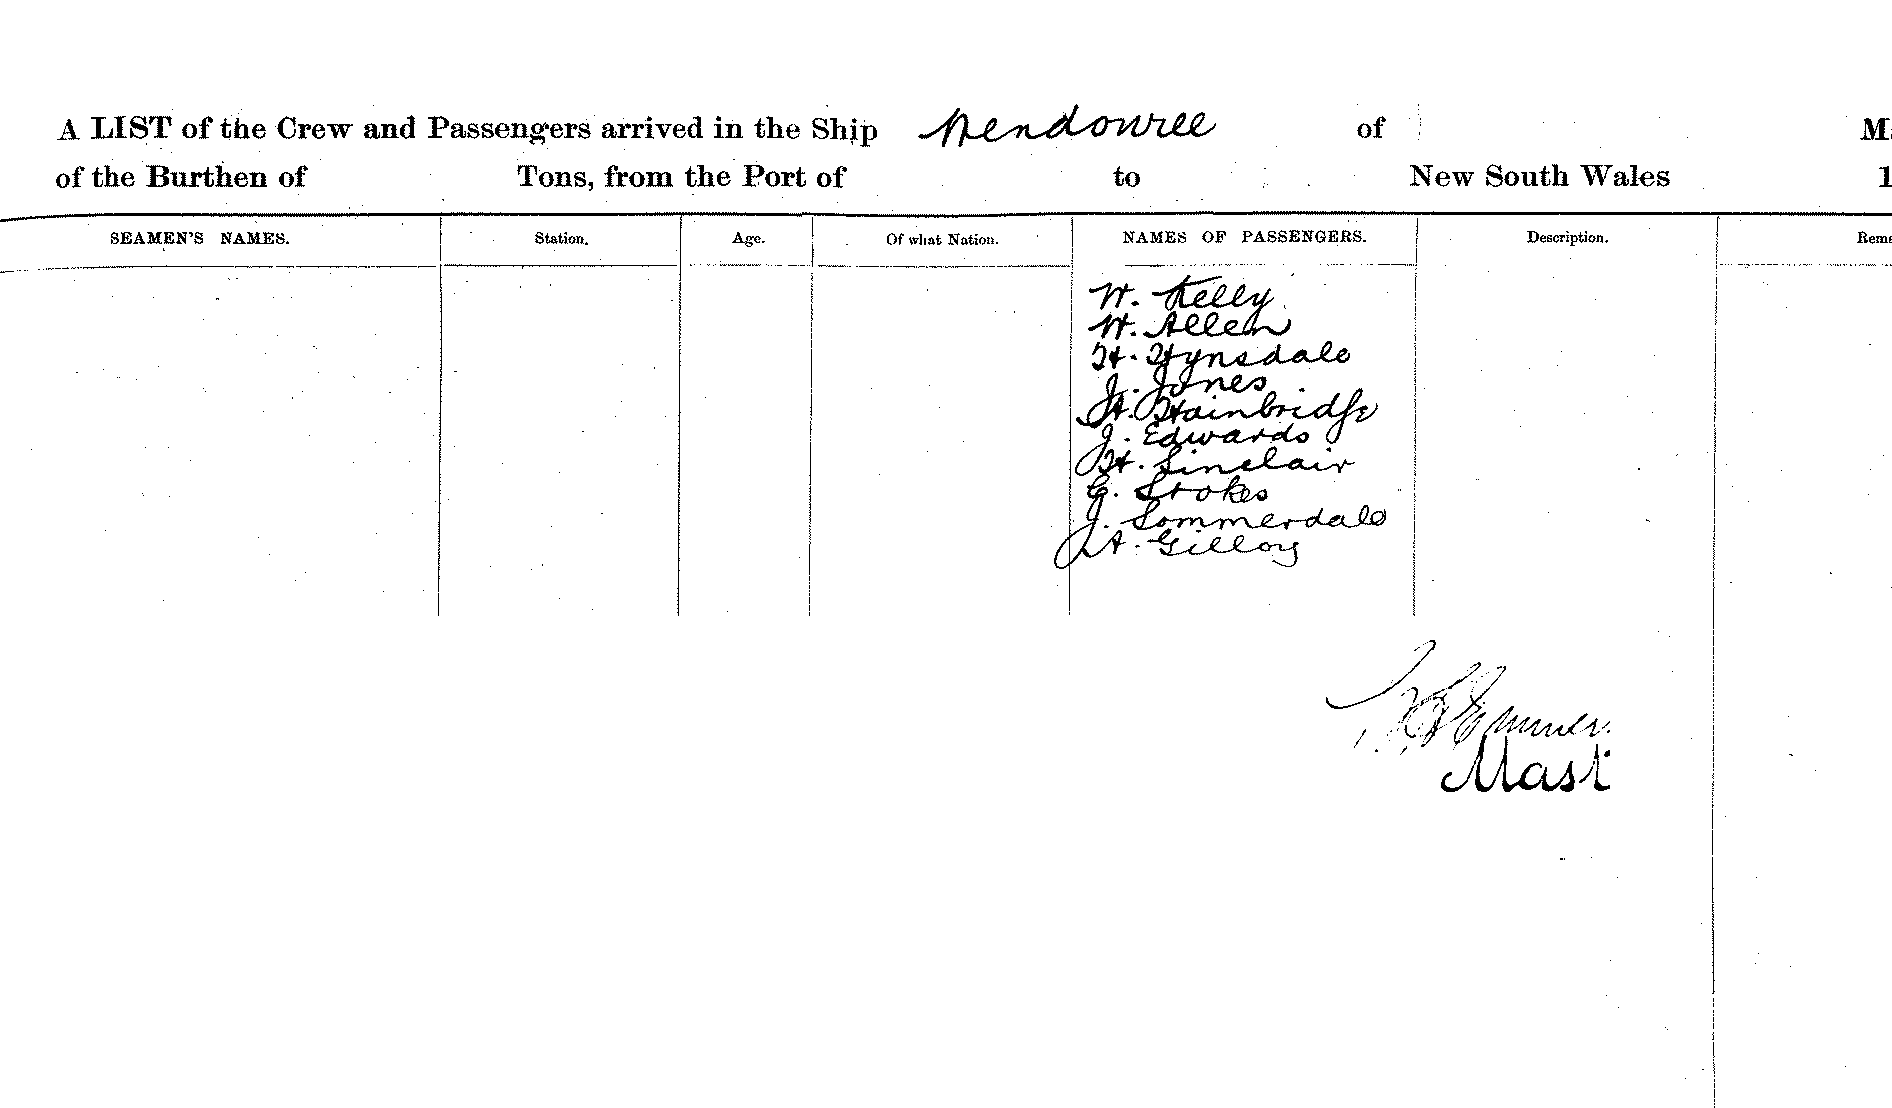 A LIST of the Crew and Passengers arrived in the Ship Wendouree of
of the Burthen of Tons, from the Port of to New South Wales 1
SEAMEN'S NAMES. Station. Age. Of what Nation. NAMES OF PASSENGERS. Description.
W. Kelly
W. Allen
H. Hynsdale
J. Jones
H. Hainbridge
J. Edwards
H. Sinclair
G. Stokes
J. Sommerdale
A. Gilloy
Mast